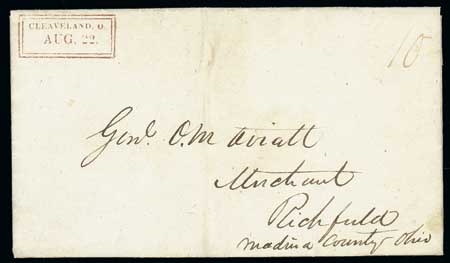 CLEAVELAND, O.
AUG. 22.
10
Genl. O. M Oviatt
Merchant
Richfield
Medina County Ohio